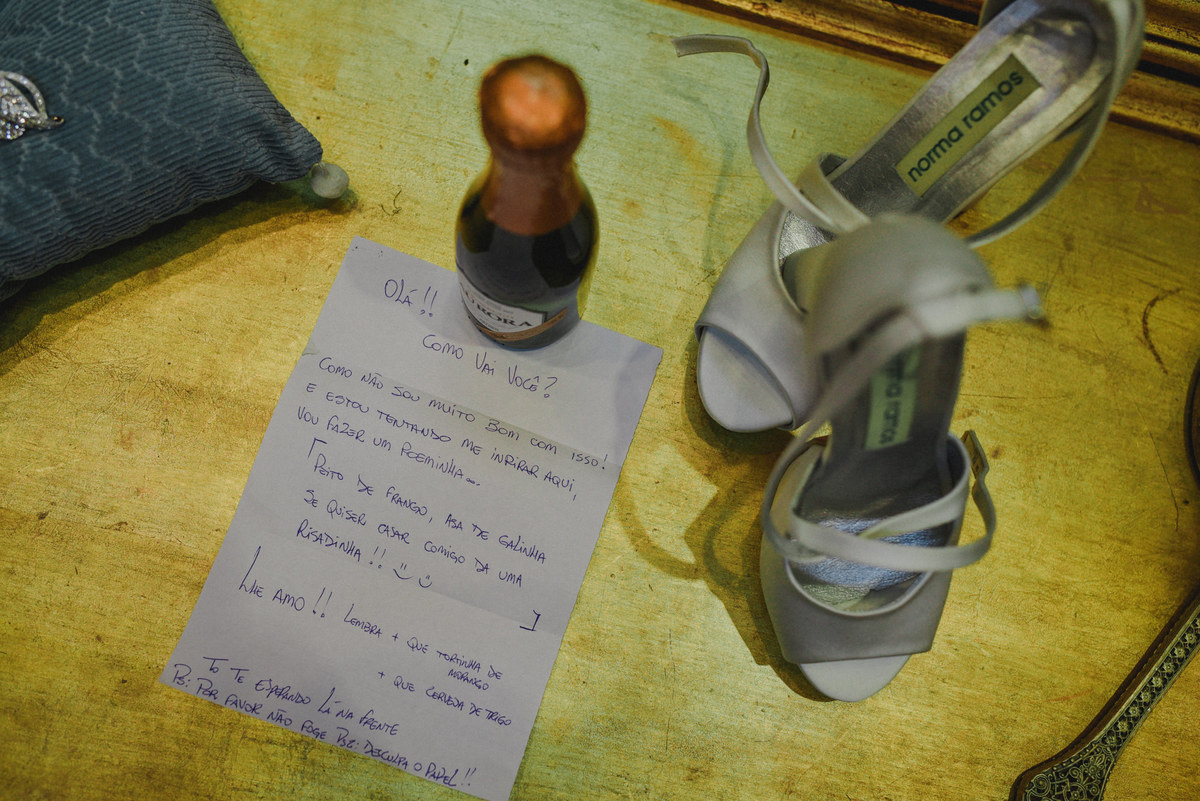 OLÁ!!
COMO VAI VOCÊ?
COMO NÃO SOU MUITO BOM COM ISSO!
E ESTOU TENTANDO ME INRIRAR AQUI,
VOU FAZER UM POEMINHA...
"PEITO DE FRANGO, ASA DE GALINHA
SE QUISER CASAR COMIGO DA UMA
RISADINHA!! :) :)
LHE AMO!! LEMBRA + QUE TORTINHA DE
MORANGO
+ QUE CERVEJA DE TRIGO
TO TE ESPERANDO LÁ NA FRENTE
PS: POR FAVOR NÃO FOGE PS2: DESCULPA O PAPEL!!
norma ramos
ramos